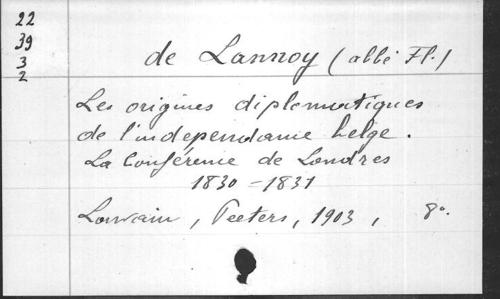 22
39
3
2
de Lannoy (abbé Fl.)
Les origines diplomatiques
de l'independance belge.
La Conférence de Londres
1830-1831
Louvain, Peeters, 1903, 8°.